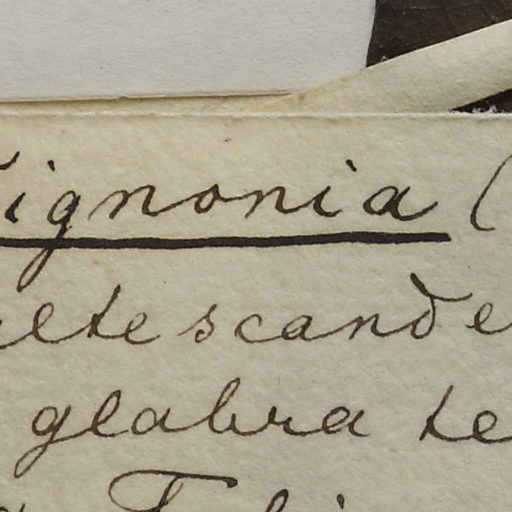 ignonia (
elte scande
glabra te